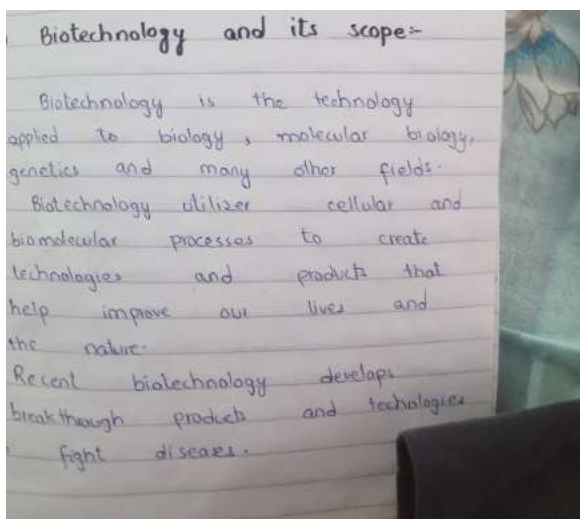 Biotechnology and its scope:-
Biotechnology is the technology
applied to biology, molecular biology,
genetics and many other fields.
Biotechnology utilizer cellular and
biomolecular processes to create
technologies and products that
help improve our lives and
the nature.
Recent biotechnology develops
breakthrough products and techologies
fight diseases.